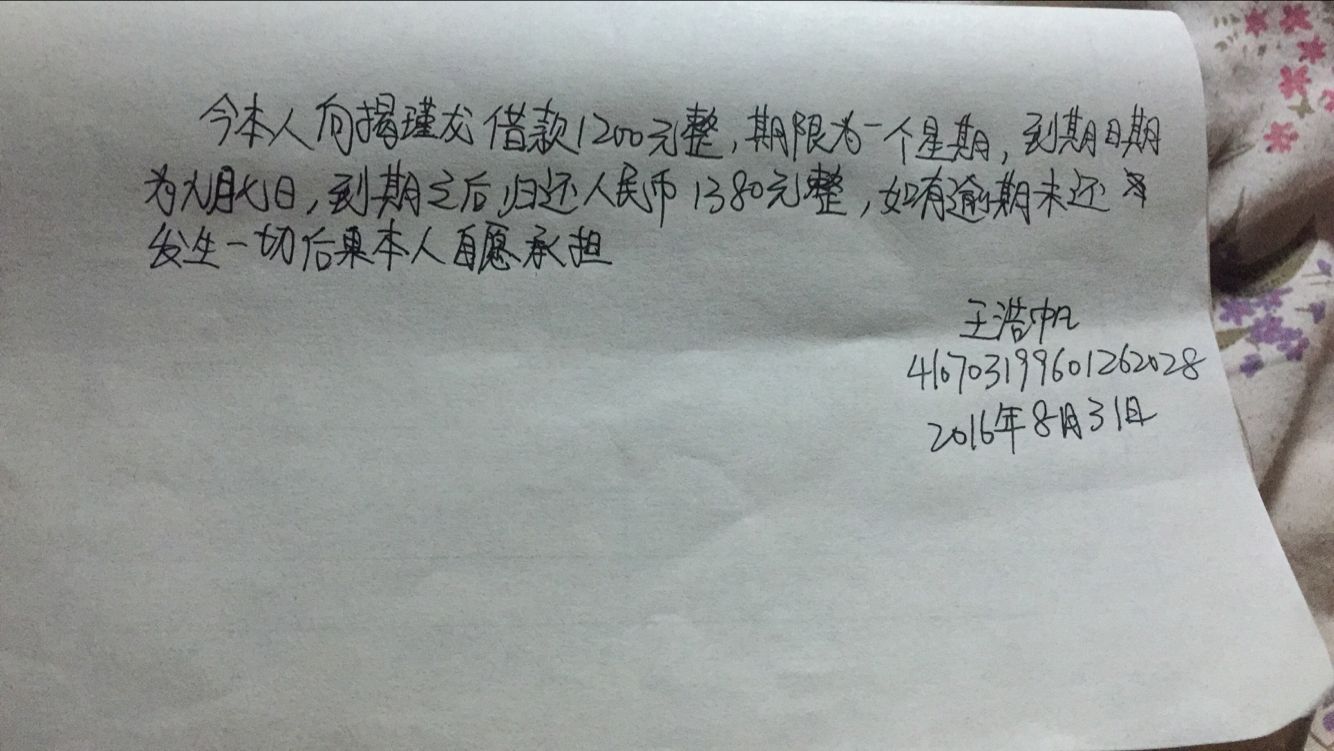 今本人向揭瑾龙借款1200元整,期限为一个星期,到期日期
为九月七日,到期之后归还人民币1380元整,如有逾期未还
发生一切后果本人自愿承担
王浩
46703199601262028
2016年8月31日